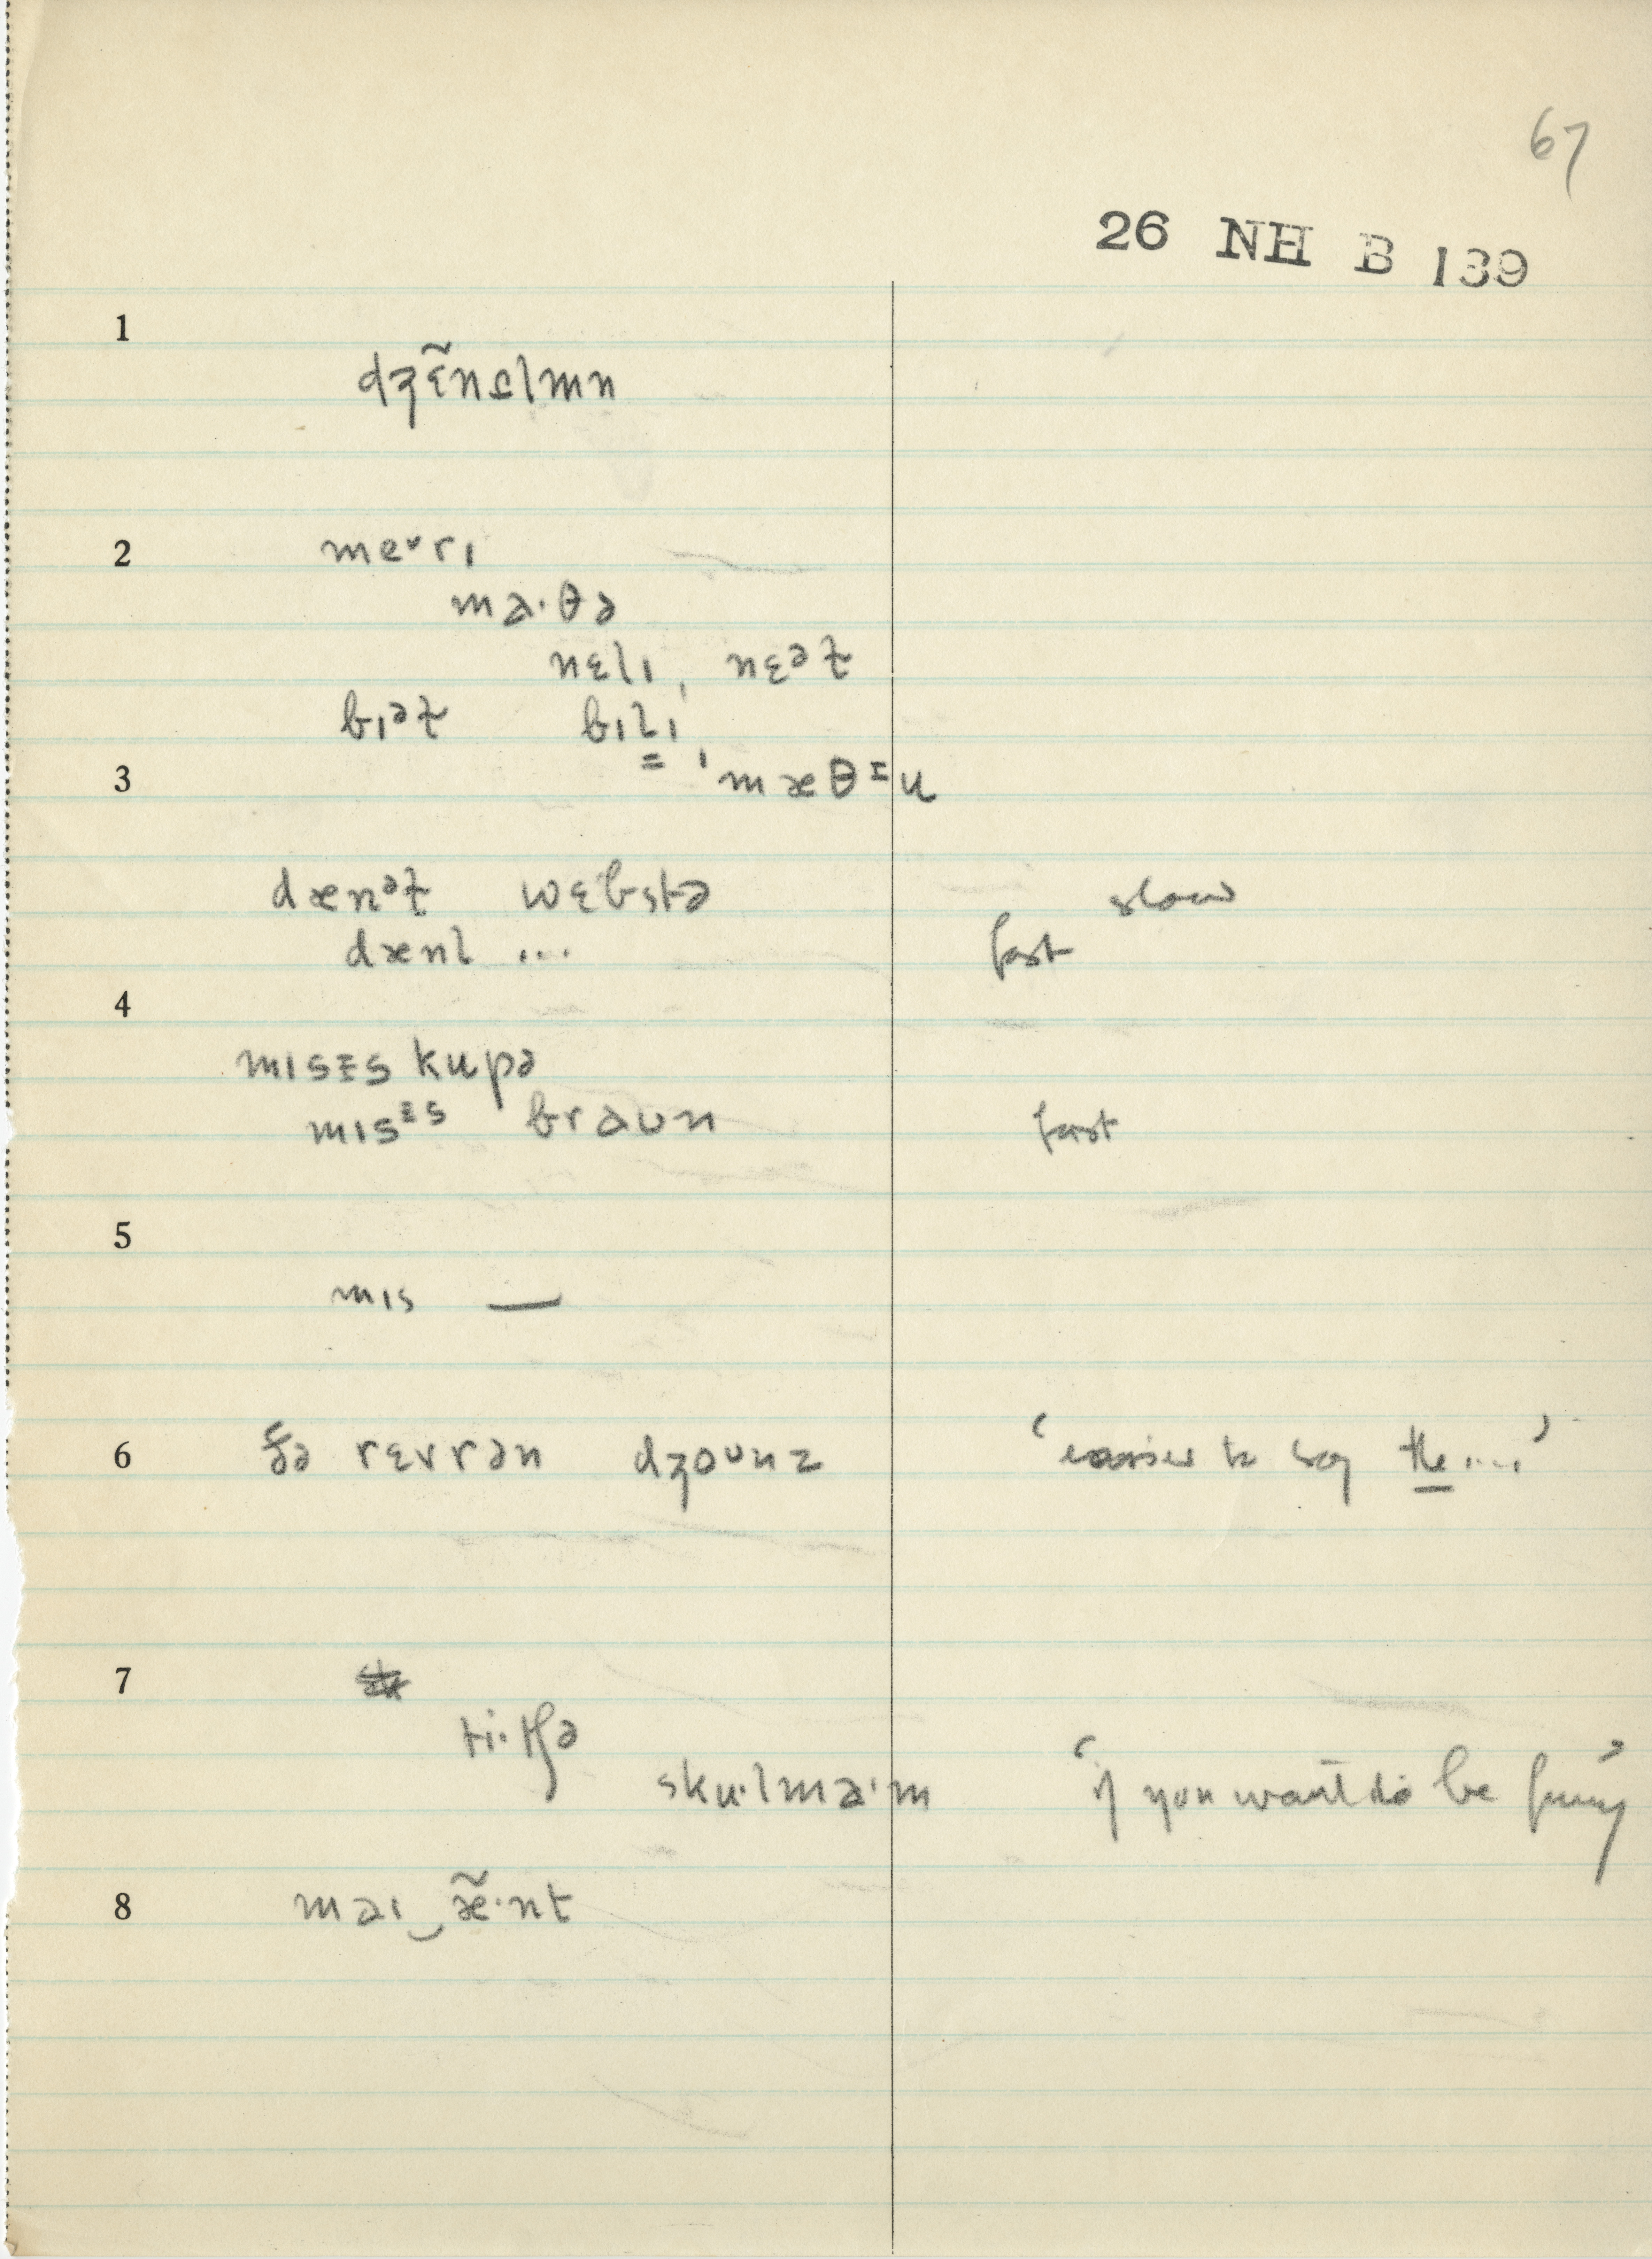 67
26 NH B 139
1
dʒɛ̃nslmn
2
meᵛrɪ
ma·θə
nɛlɪ, nɛᵊɫ
bɪᵊɫ bɪlɪ,
3
ˈmæθᵻu
dænᵊɫ wɛbstə
slow
dænl ...
fast
4
mɪsᵻs kupə
mɪsᵻs braʊn
fast
5
mɪs —
6
ðə rɛvrən dʒoᵘnz
‘easier to say the....’
7
ti·tʃə
sku·lma·m
‘if you want to be funny’
8
maɪ‿æ̃·nt